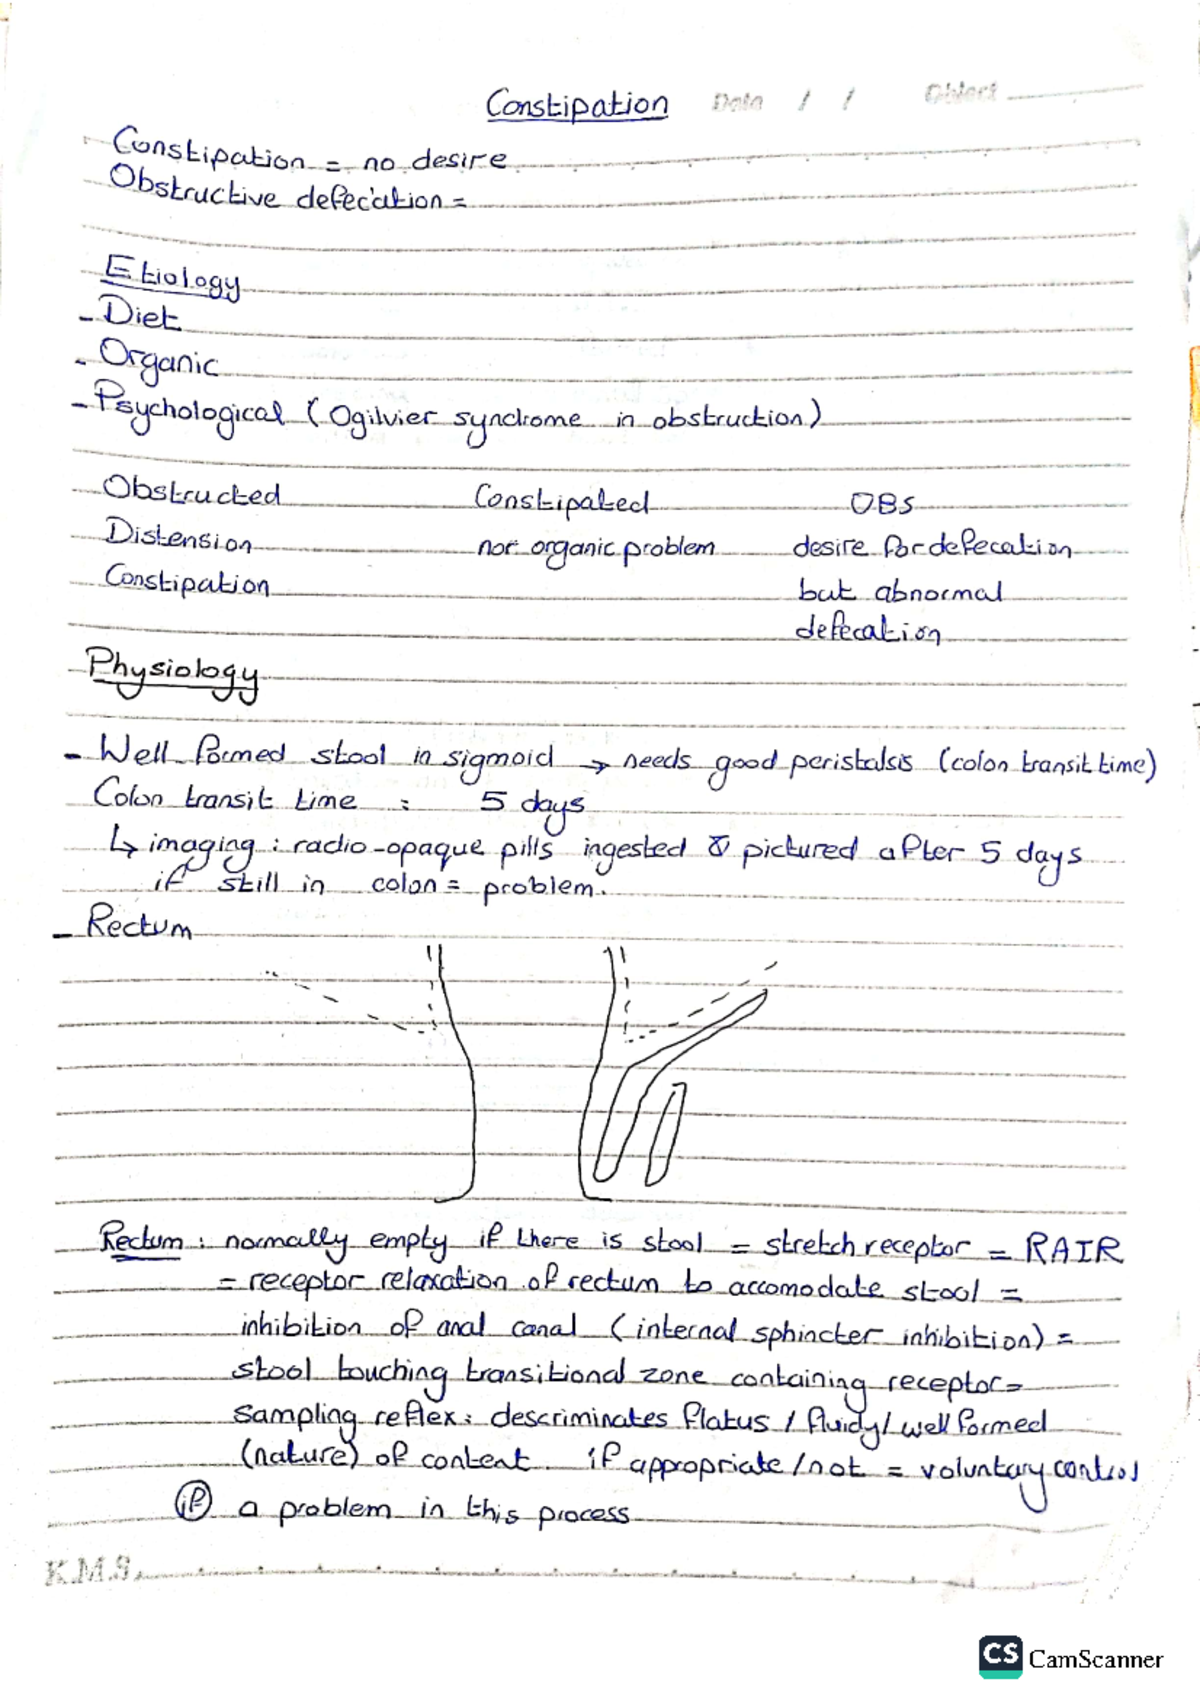 Constipation Date / / Object
Constipation = no desire
Obstructive defecation =
Etiology
- Diet
- Organic
- Psychological (Ogilvier syndrome in obstruction)
Obstructed Constipated OBS
Distension not organic problem desire for defecation
Constipation but abnormal
defecation
Physiology
- Well formed stool in sigmoid → needs good peristalsis (colon transit time)
Colon transit time : 5 days
↳ imaging : radio-opaque pills ingested & pictured after 5 days
if still in colon = problem.
- Rectum
Rectum : normally empty if there is stool = stretch receptor = RAIR
= receptor relaxation of rectum to accomodate stool =
inhibition of anal canal (internal sphincter inhibition) =
stool touching transitional zone containing receptor =
sampling reflex : descriminates flatus / fluidy / well formed
(nature) of content. if appropriate / not = voluntary control
if a problem in this process
K.M.S.
CS CamScanner